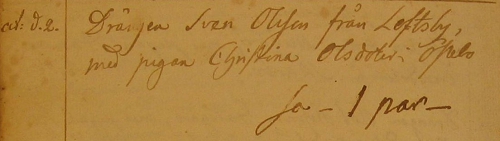 od: d. 2. Drängen Swän Olsson från Leftsby,
med pigan Christina Olsdoter i Öfvelö
Sa – 1 par –